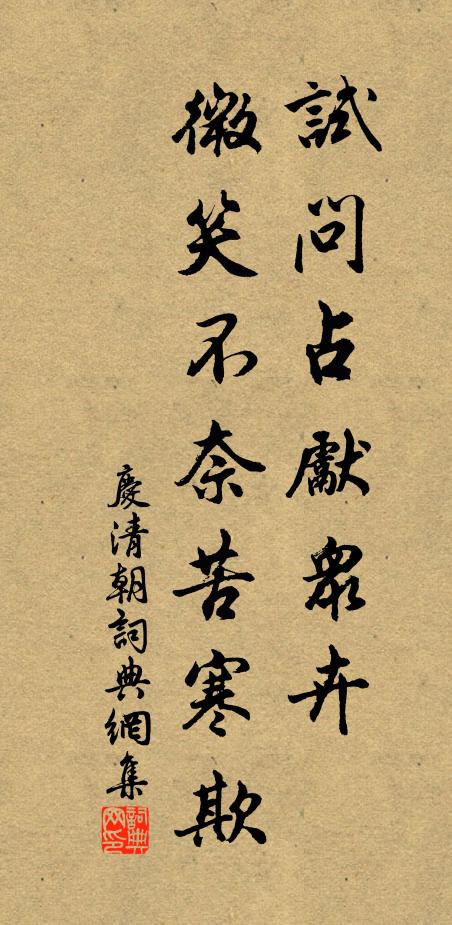 試問占獻衆卉
微笑不奈苦寒欺
慶清朝詞典網集
詞典網印